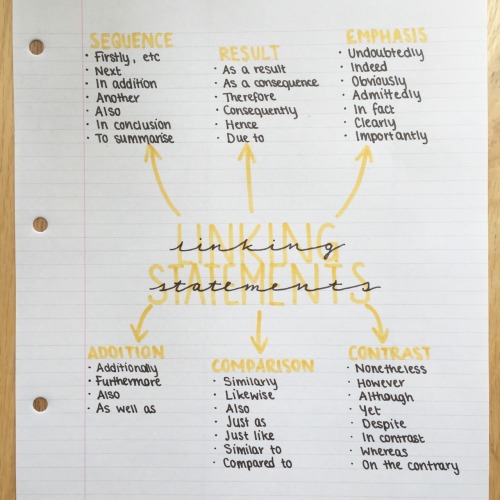 SEQUENCE
· Firstly, etc
· Next
· In addition
· Another
· Also
· In conclusion
· To summarise
RESULT
· As a result
· As a consequence
· Therefore
· Consequently
· Hence
· Due to
EMPHASIS
· Undoubtedly
· Indeed
· Obviously
· Admittedly
· In fact
· Clearly
· Importantly
LINKING
linking
STATEMENTS
statements
ADDITION
· Additionally
· Furthermore
· Also
· As well as
COMPARISON
· Similarly
· Likewise
· Also
· Just as
· Just like
· Similar to
· Compared to
CONTRAST
· Nonetheless
· However
· Although
· Yet
· Despite
· In contrast
· Whereas
· On the contrary